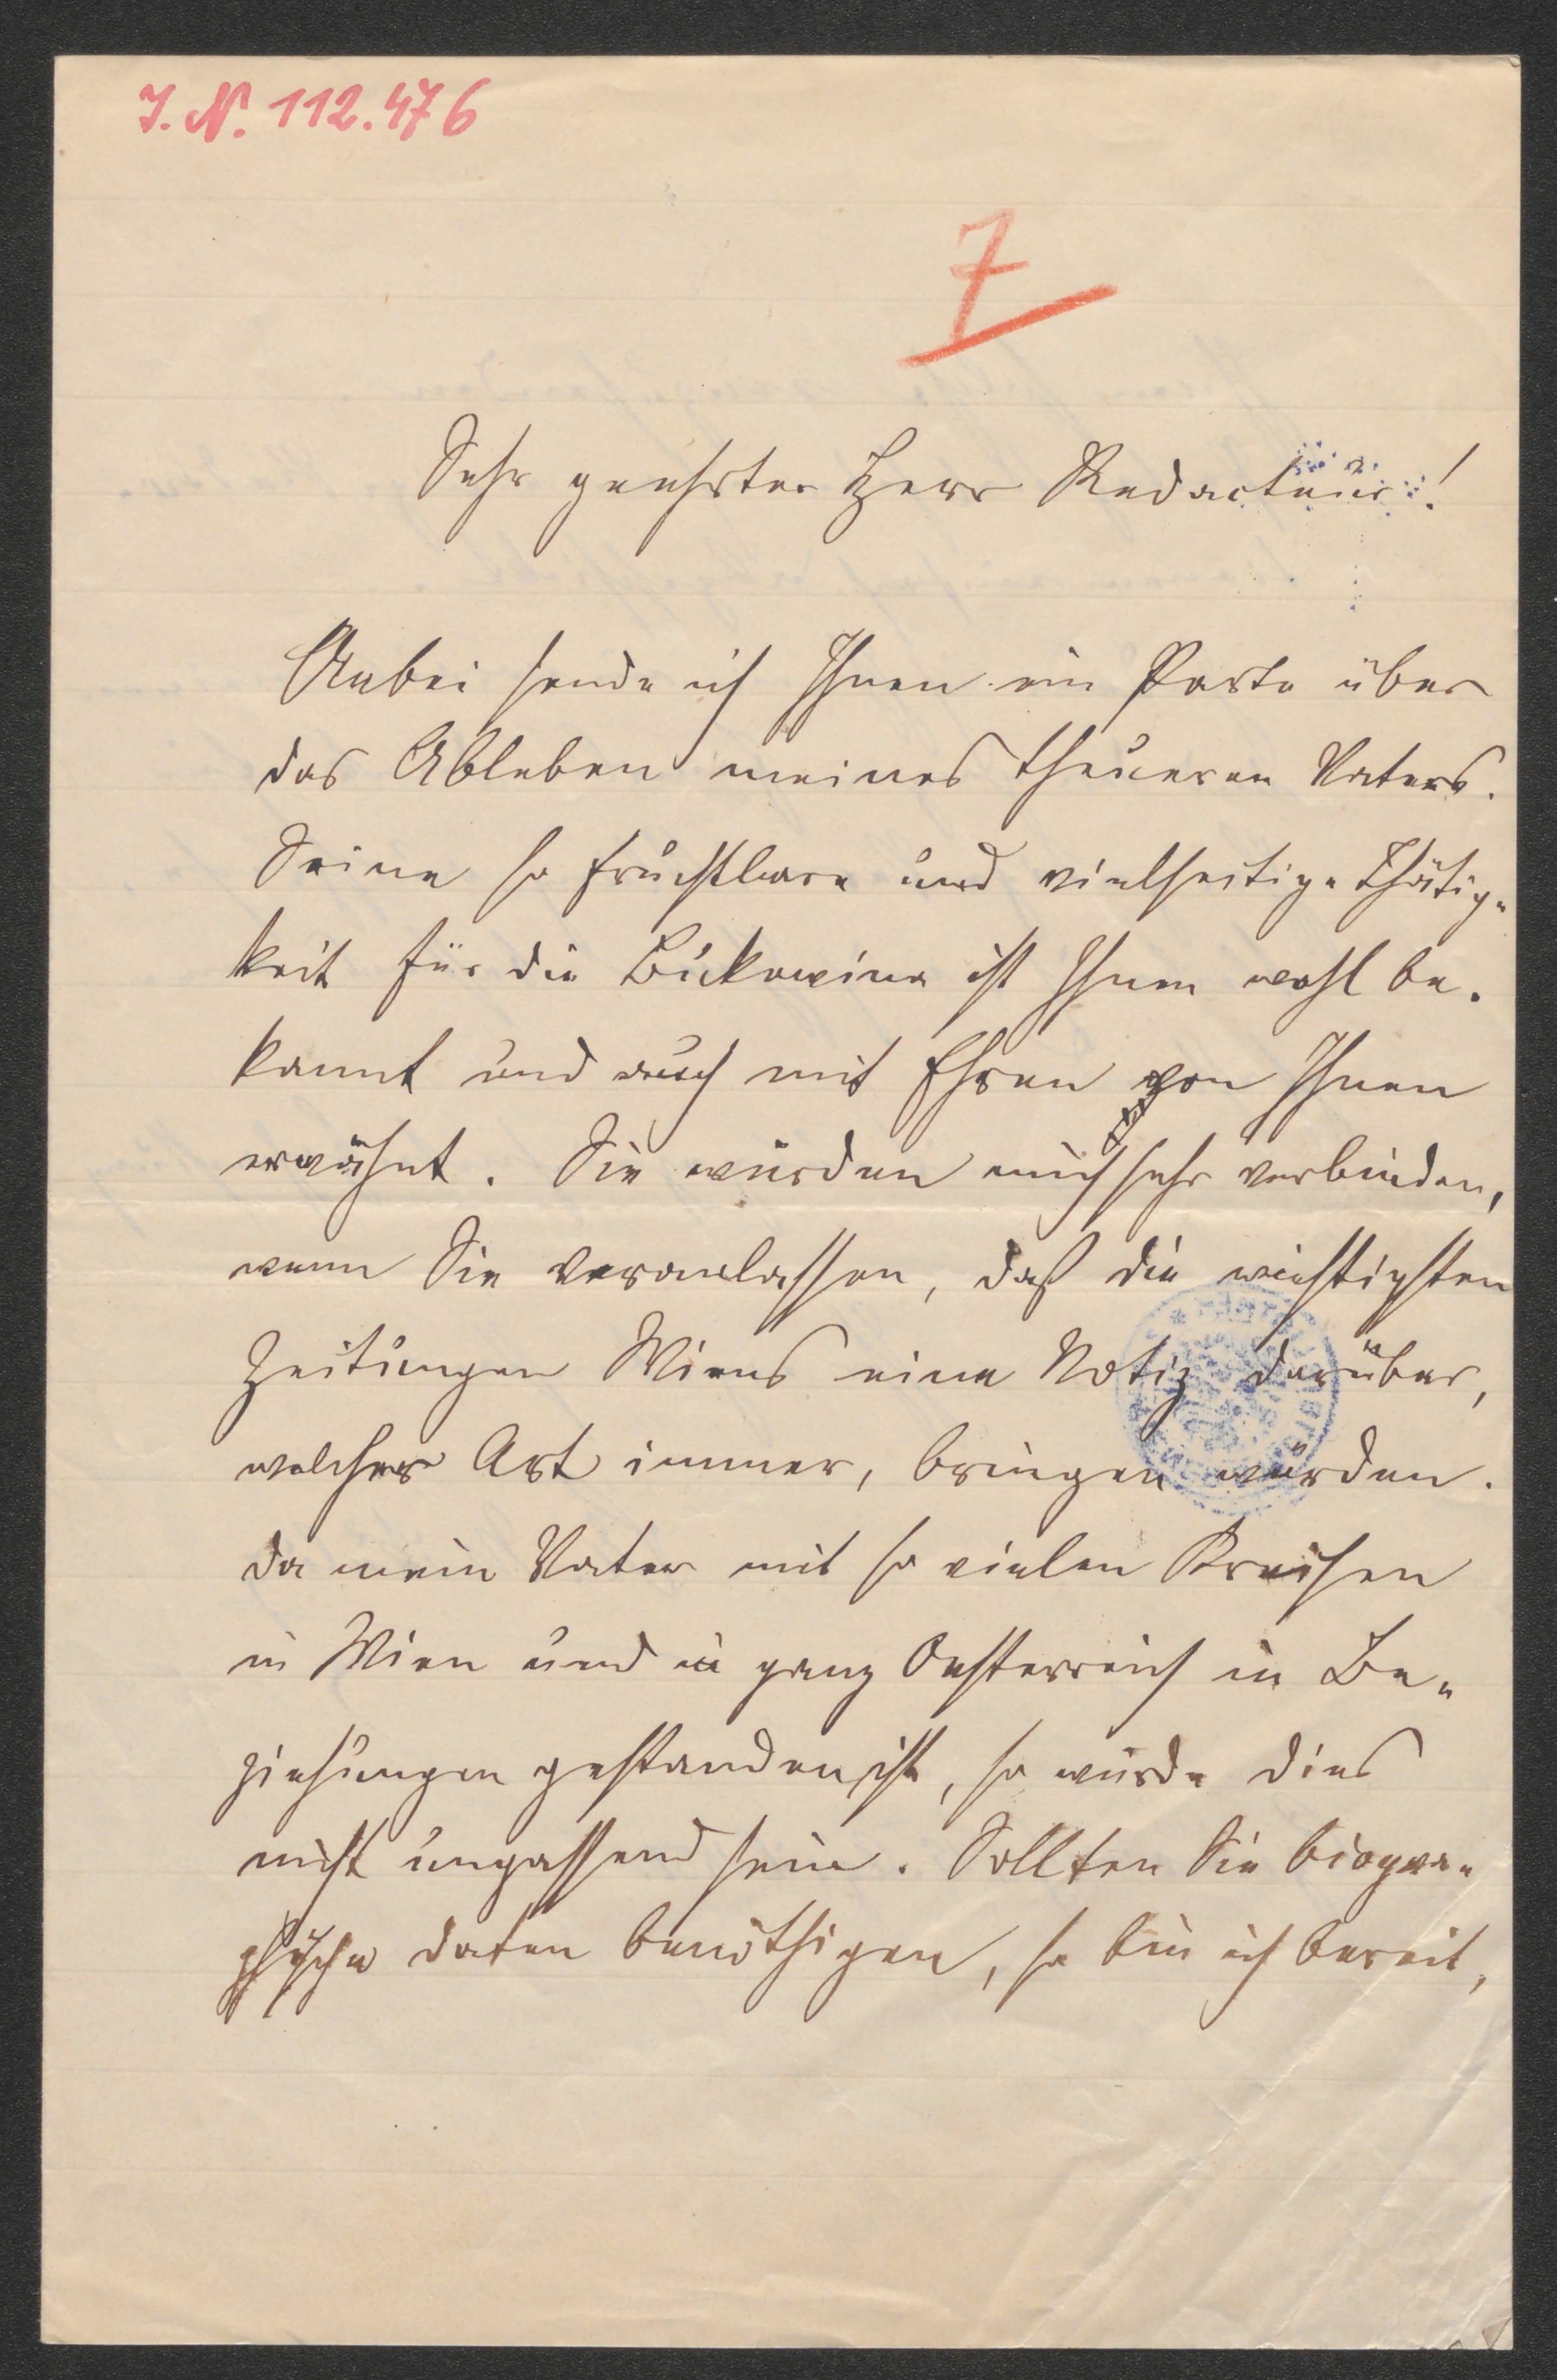 I. N. 112.476
7
Sehr geehrter Herr Redacteur!
Anbei sende ich Ihnen ein Parte über
das Ableben meines theueren Vaters.
Seine so fruchtbare und vielseitige Thätig-
keit für die Bukowina ist Ihnen wohl be-
kannt und auch mit Ehren von Ihnen
erwähnt. Sie würden mich sehr verbinden,
wenn Sie veranlassen, daß die wichtigsten
Zeitungen Wiens eine Notiz darüber,
welcher Art immer, bringen würden.
Da mein Vater mit so vielen Kreisen
in Wien und in ganz Oesterreich in Be-
ziehungen gestanden ist, so würde dies
nicht unpassend sein. Sollten Sie biogra-
phische Daten benöthigen, so bin ich bereit,